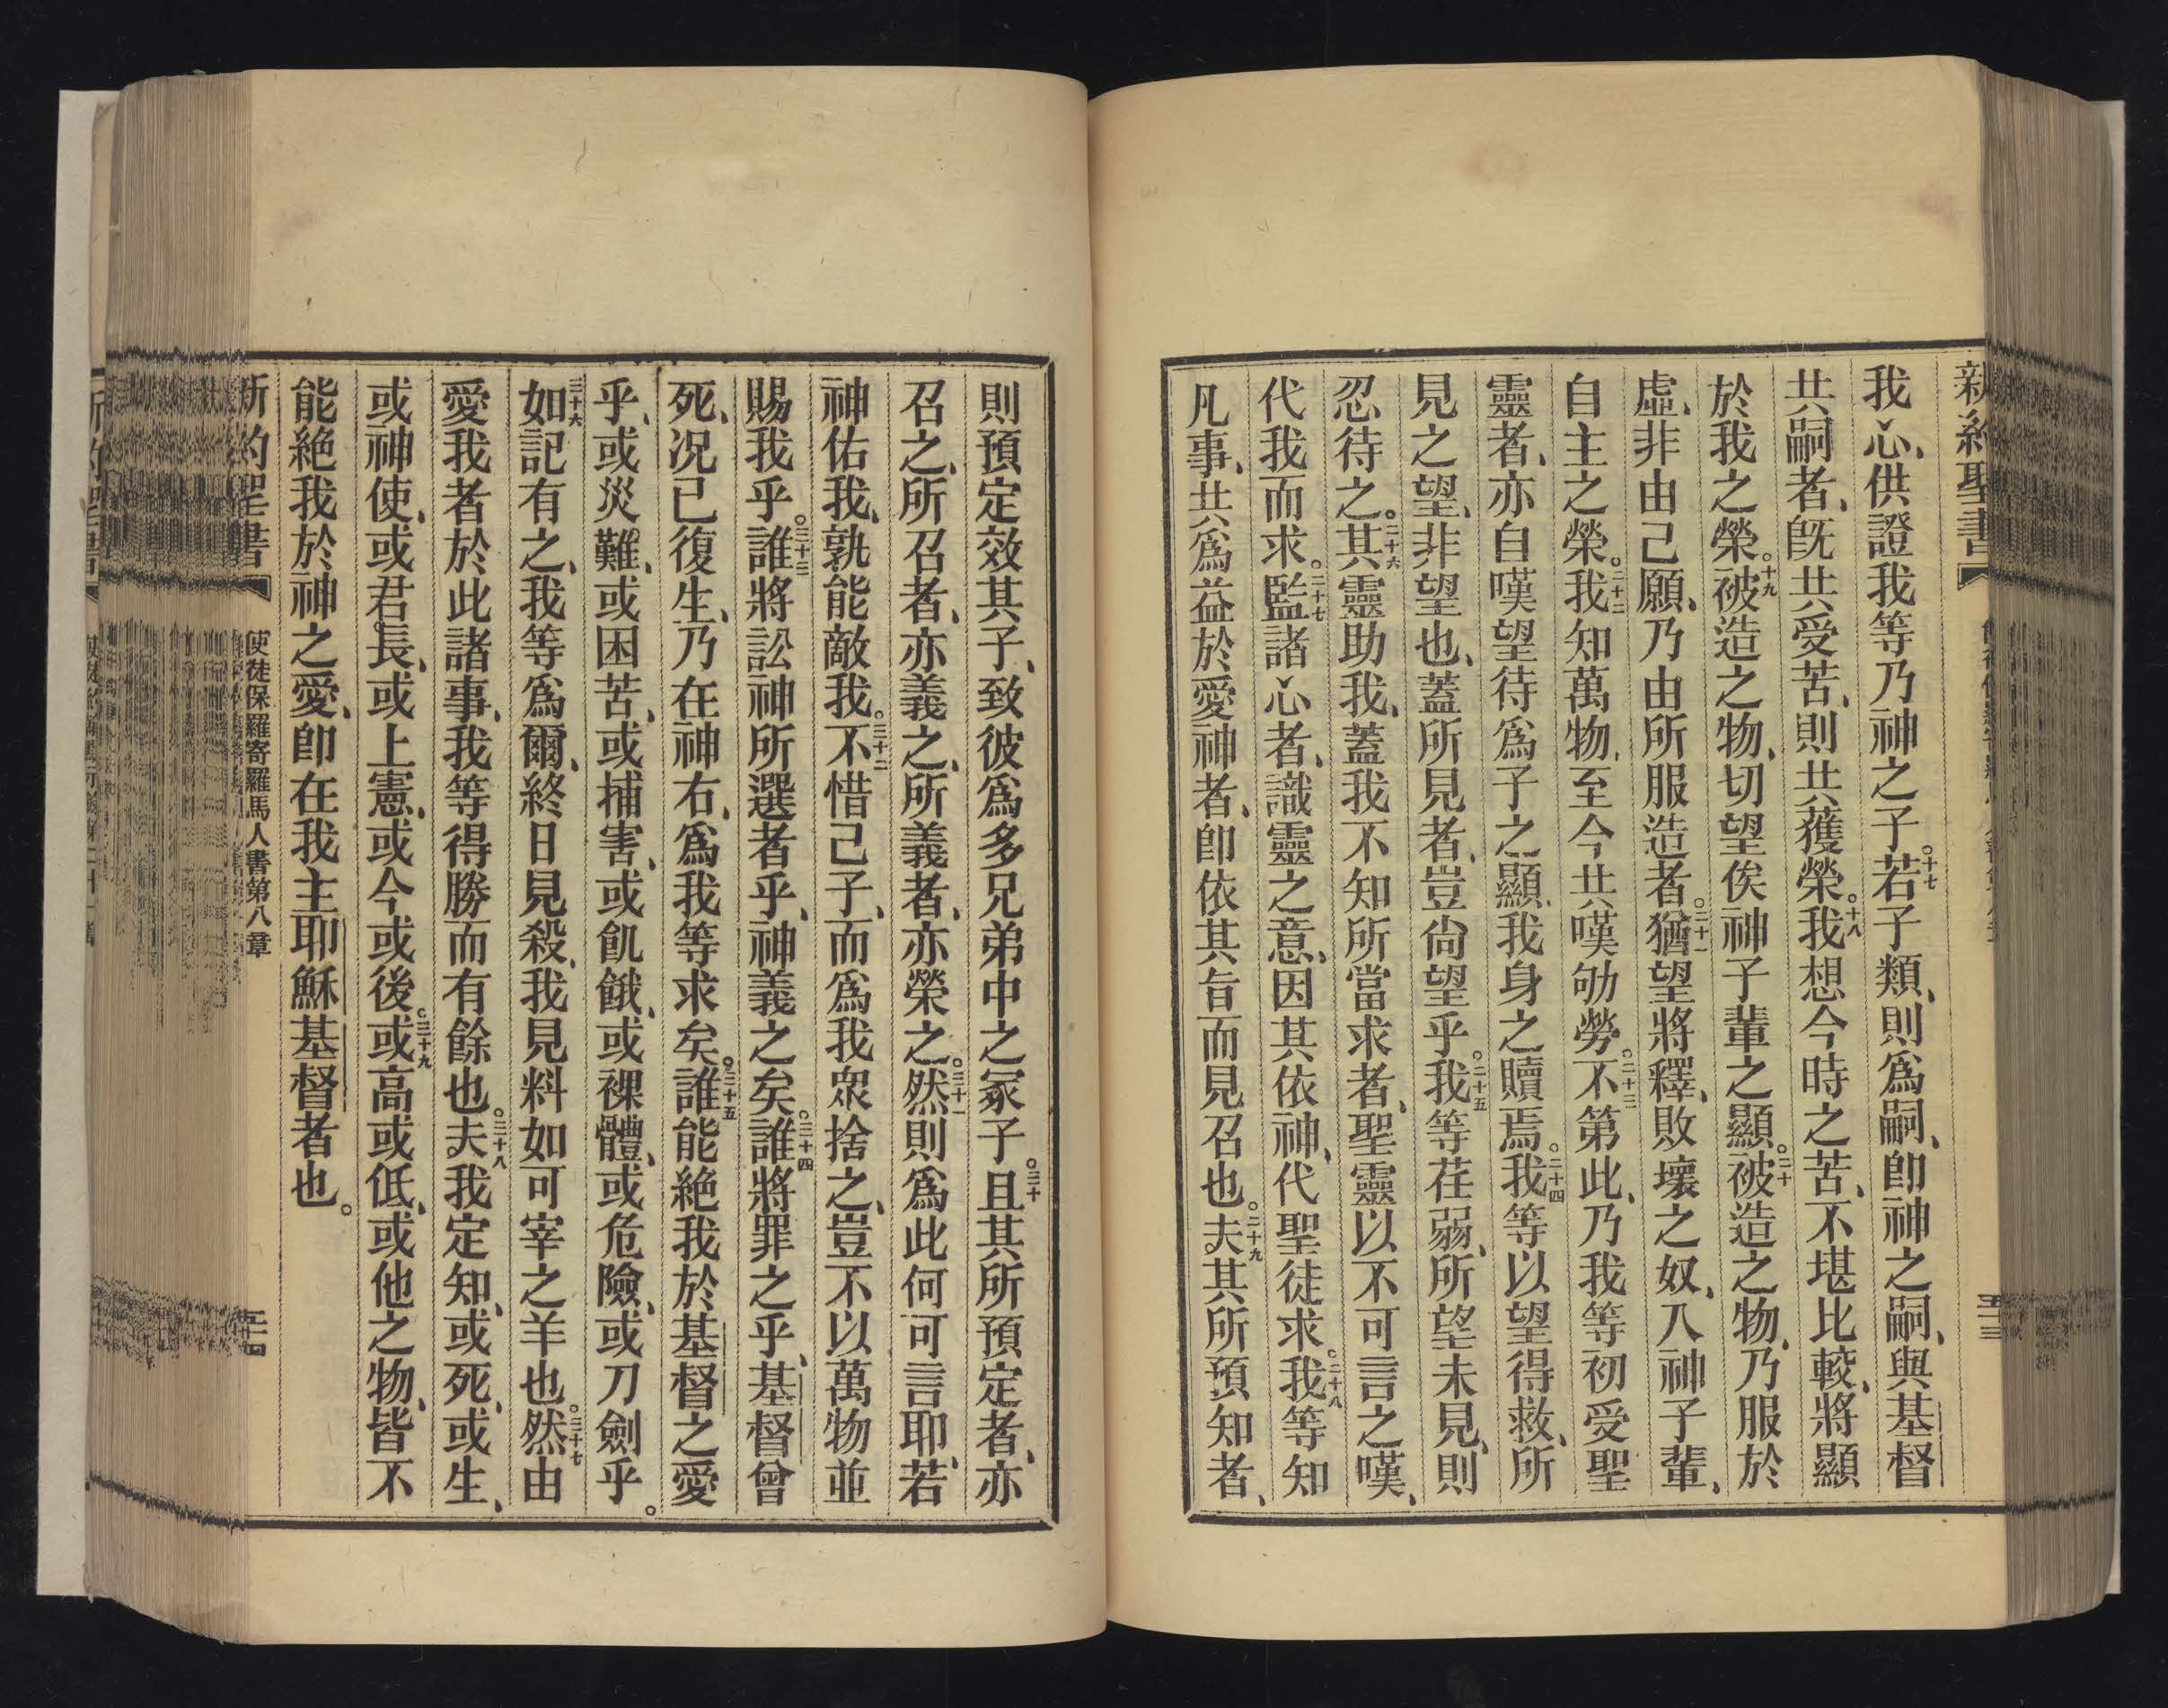 新約聖書
五十三
我心、供證我等乃神之子。十七若子類、則爲嗣、卽神之嗣、與基督
共嗣者、旣共受苦、則共獲榮。十八我想今時之苦、不堪比較、將顯
於我之榮。十九被造之物、切望俟神子輩之顯。二十被造之物、乃服於
虛、非由己願、乃由所服造者。二十一猶望將釋、敗壞之奴、入神子輩、
自主之榮。二十二我知萬物、至今共嘆劬勞。二十三不第此、乃我等初受聖
靈者、亦自嘆望待爲子之顯、我身之贖焉。二十四我等以望得救、所
見之望、非望也、蓋所見者、豈尙望乎。二十五我等荏弱、所望未見、則
忍待之。二十六其靈助我、蓋我不知所當求者、聖靈以不可言之嘆、
代我而求。二十七監諸心者、識靈之意、因其依神、代聖徒求。二十八我等知
凡事、共爲益於愛神者、卽依其旨而見召也。二十九夫其所預知者、
則預定效其子、致彼爲多兄弟中之冢子。三十且其所預定者、亦
召之、所召者、亦義之、所義者、亦榮之。三十一然則爲此何可言耶、若
神佑我、孰能敵我。三十二不惜己子、而爲我眾捨之、豈不以萬物並
賜我乎。三十三誰將訟神所選者乎、神義之矣。三十四誰將罪之乎、基督曾
死、况已復生、乃在神右、爲我等求矣。三十五誰能絕我於基督之愛
乎、或災難、或困苦、或捕害、或飢餓、或裸體、或危險、或刀劍乎。
三十六如記有之、我等爲爾、終日見殺、我見料如可宰之羊也。三十七然由
愛我者於此諸事、我等得勝而有餘也。三十八夫我定知、或死、或生、
或神使、或君長、或上憲、或今或後。三十九或高或低、或他之物、皆不
能絕我於神之愛、卽在我主耶穌基督者也。
新約聖書
使徒保羅寄羅馬人書第八章
五十四